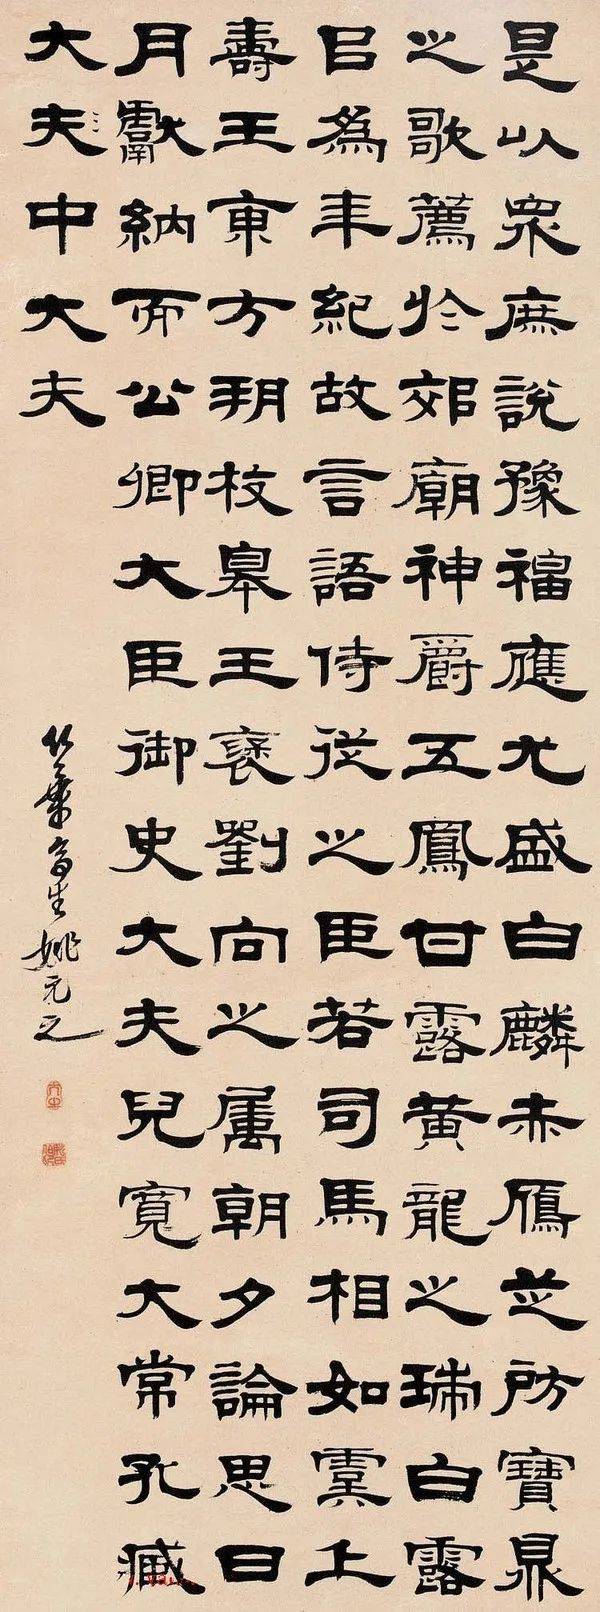 是以眾庶說豫福應尤盛白麟赤鴈芝房寶鼎
之歌薦於郊廟神爵五鳳甘露黃龍之瑞白露
㠯為年紀故言語侍從之臣若司馬相如虞上
壽王東方朔枚皋王褒劉向之属朝夕論思日
月獻納而公卿大臣御史大夫兒寬大常孔臧
大夫中大夫
竹葉亭生姚元之